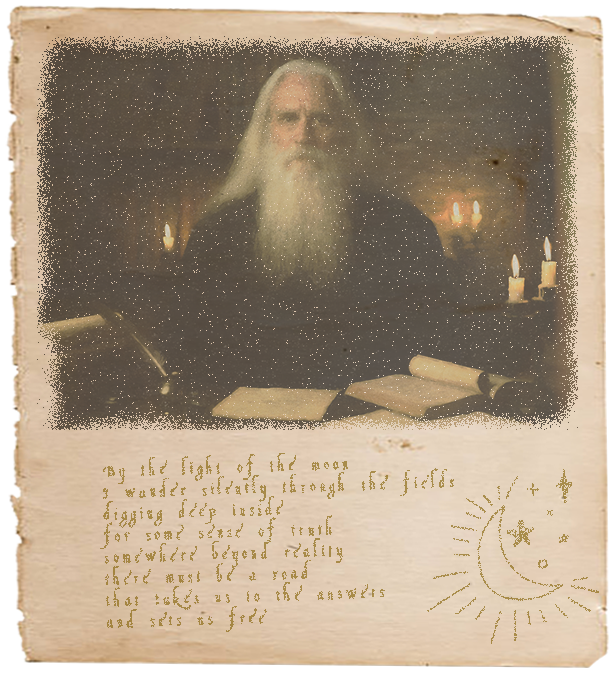 By the light of the moon
I wander silently through the fields
digging deep inside
for some sense of truth
somewhere beyond reality
there must be a road
that takes us to the answers
and sets us free